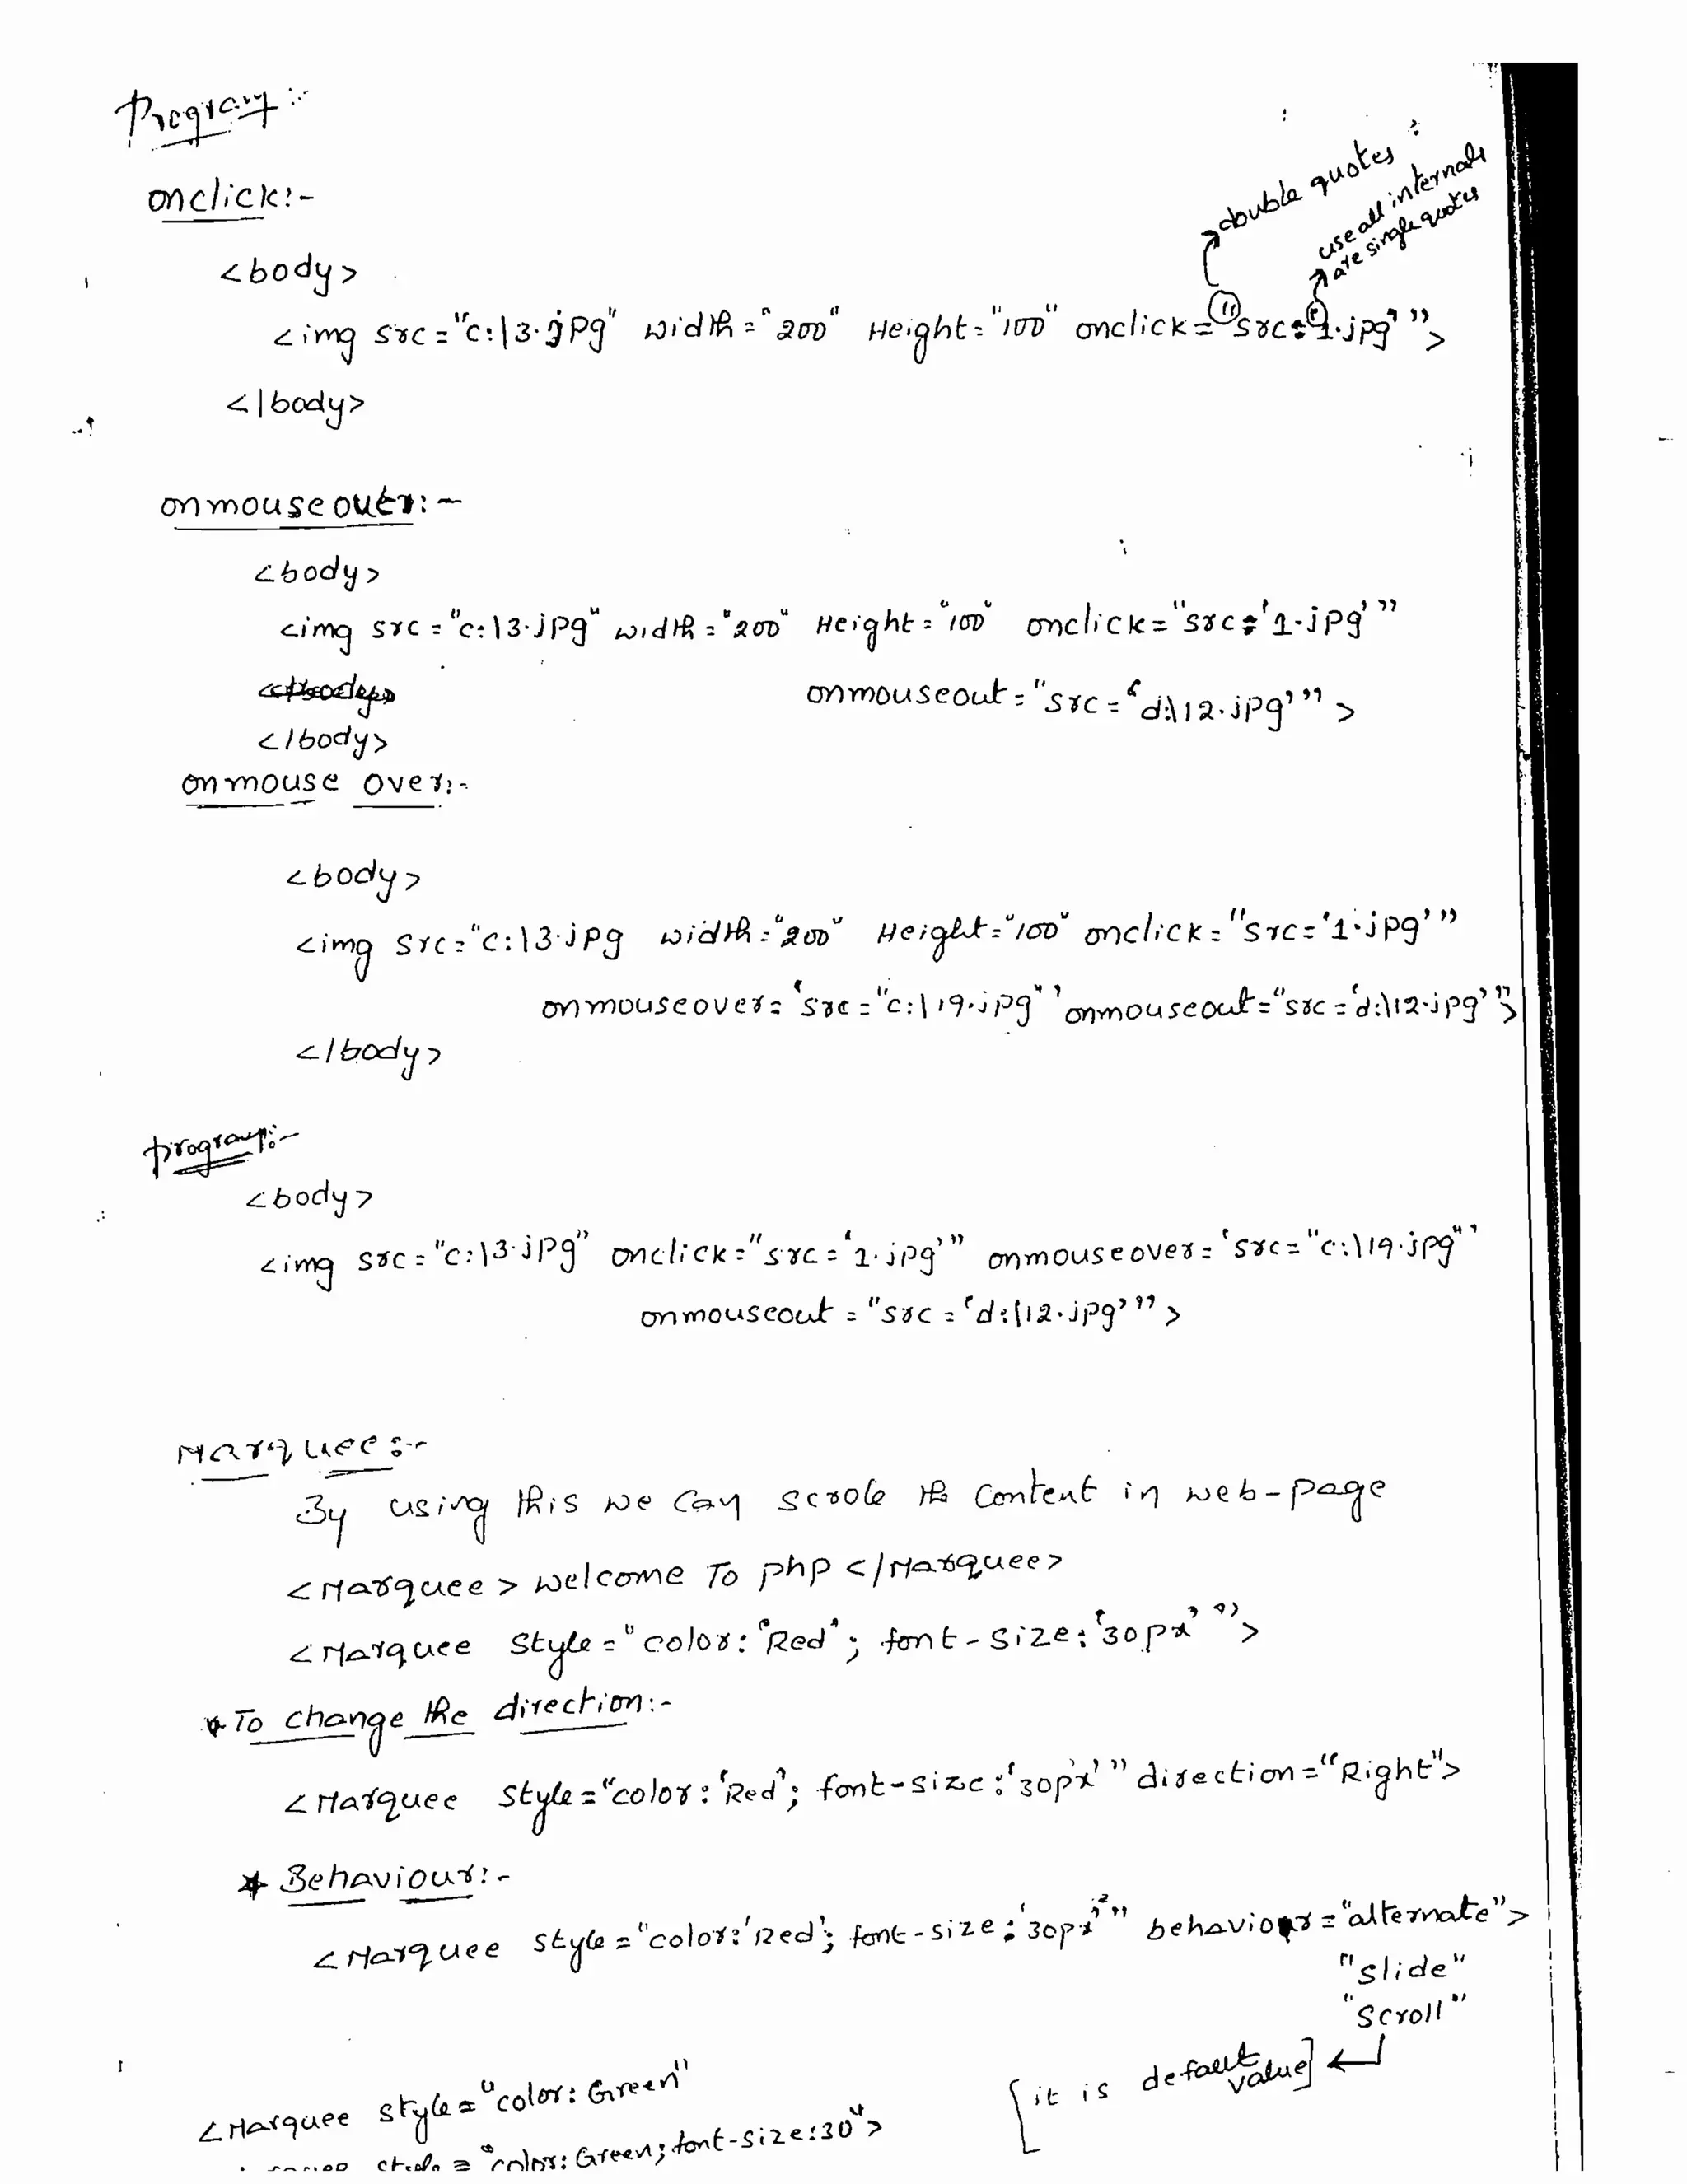 Program :-
onclick:-
double quotes
use all internals
are single quotes
<body>
<img src="c:\3.jpg" width="200" Height="100" onclick="src='1.jpg'">
</body>
onmouseout:-
<body>
<img src="c:\3.jpg" width="200" Height="100" onclick="src='1.jpg'"
onmouseout="src='d:\12.jpg'">
</body>
onmouse over:-
<body>
<img src="c:\3.jpg width="200" Height="100" onclick="src='1.jpg'"
onmouseover='src="c:\19.jpg"' onmouseout="src='d:\12.jpg'">
</body>
program:-
<body>
<img src="c:\3.jpg" onclick="src='1.jpg'" onmouseover='src="c:\19.jpg"'
onmouseout="src='d:\12.jpg'">
Marquee:-
By using this we can scrole the content in web-page
<Marquee> welcome To php </Marquee>
<Marquee style="color:'Red'; font-size:'30px'">
* To change the direction:-
<Marquee style="color:'Red'; font-size:'30px'" direction="Right">
* Behaviour:-
<Marquee style="color:'Red'; font-size:'30px'" behaviour="alternate">
"slide"
"scroll"
[it is default value]
<Marquee style="color: Green"
style="color: Green; font-size:30">